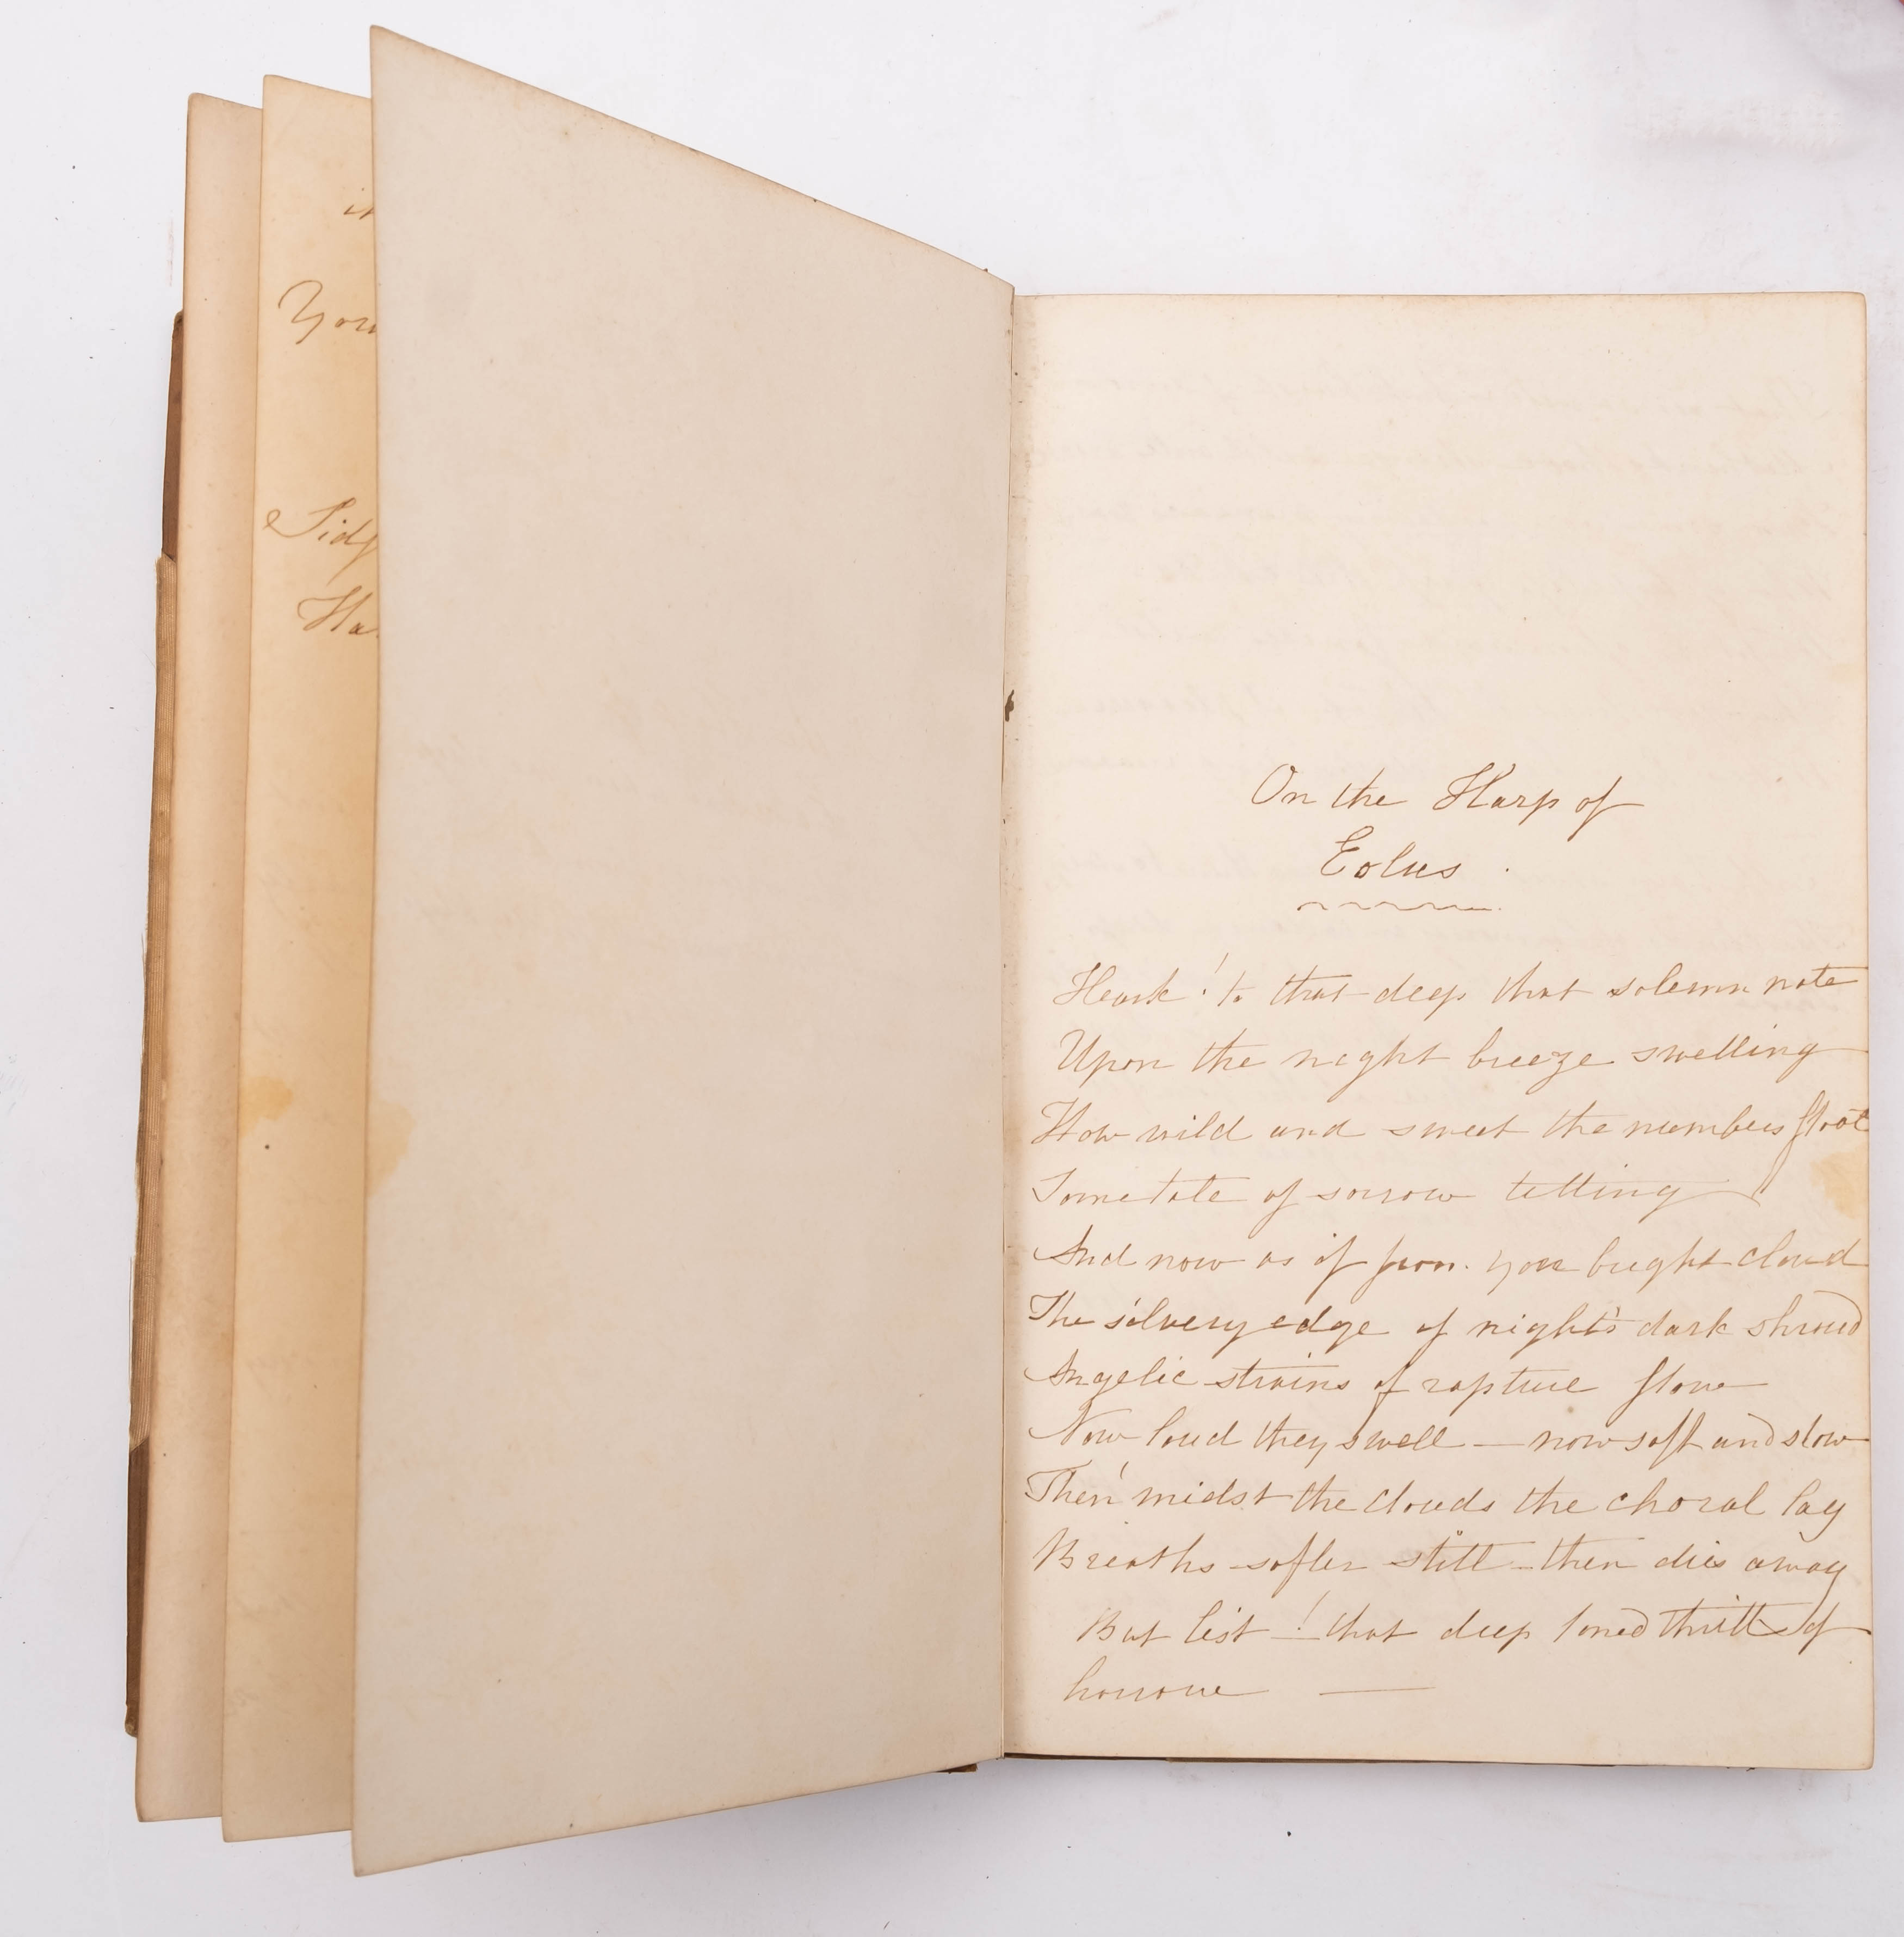 You
Sidg
Ha
On the Harp of
Eolus.
Heark! to that deep that solemn note
Upon the night breeze swelling
How wild and sweet the numbers float
Some tale of sorrow telling
And now as if from yon bright cloud
The silvery edge of night's dark shroud
Angelic strains of rapture flow
Now loud they swell — now soft and slow
Then 'midst the clouds the choral lay
Breaths softer still - then dies away
But list! that deep toned thrill of
horrour —